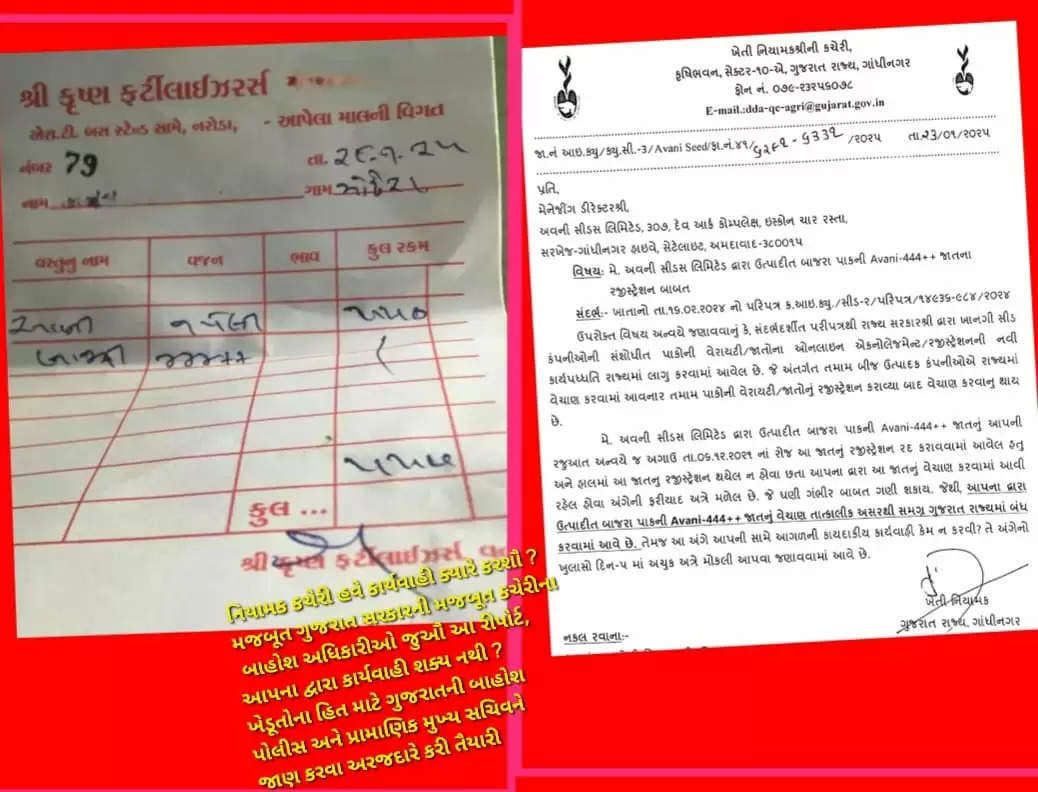 શ્રી કૃષ્ણ ફર્ટીલાઈઝર્સ
એસ.ટી. બસ સ્ટેન્ડ સામે, નરોડા, - આપેલા માલની વિગત
નંબર 79 તા. ૨૯.૧.૨૫
નામ ગામ
વસ્તુનુ નામ વજન ભાવ કુલ રકમ
૪૪૪++
કુલ ...
શ્રી કૃષ્ણ ફર્ટીલાઈઝર્સ વતી
નિયામક કચેરી હવે કાર્યવાહી ક્યારે કરશૌ ?
મજબૂત ગુજરાત સરકારની મજબૂત કચેરીના
બાહોશ અધિકારીઓ જુઔ આ રીપોર્ટ,
આપના દ્વારા કાર્યવાહી શક્ય નથી ?
ખેડૂતોના હિત માટે ગુજરાતની બાહોશ
પોલીસ અને પ્રામાણિક મુખ્ય સચિવને
જાણ કરવા અરજદારે કરી તૈયારી
ખેતી નિયામકશ્રીની કચેરી,
કૃષિભવન, સેક્ટર-૧૦-એ, ગુજરાત રાજ્ય, ગાંધીનગર
ફોન નં. ૦૭૯-૨૩૨૫૬૦૭૮
E-mail.:dda-qc-agri@gujarat.gov.in
જા.નં આઇ.ક્યુ/ક્યુ.સી.-3/Avani Seed/ફા.નં.૪૧/ /૨૦૨૫ તા.૨૩/૦૧/૨૦૨૫
પ્રતિ,
મેનેજીંગ ડીરેક્ટરશ્રી,
અવની સીડસ લિમિટેડ, ૩૦૭, દેવ આર્ક કોમ્પલેક્ષ, ઇસ્કોન ચાર રસ્તા,
સરખેજ-ગાંધીનગર હાઇવે, સેટેલાઇટ, અમદાવાદ-૩૮૦૦૧૫
વિષય: મે. અવની સીડસ લિમિટેડ દ્વારા ઉત્પાદીત બાજરા પાકની Avani-444++ જાતના
રજીસ્ટ્રેશન બાબત
સંદર્ભ:- ખાતાનો તા.૧૬.૦૨.૨૦૨૪ નો પરિપત્ર ક.આઇ.ક્યુ./સીડ-૨/પરિપત્ર/૧૪૯૩૬-૯૮૪/૨૦૨૪
ઉપરોક્ત વિષય અન્વયે જણાવવાનું કે, સંદર્ભદર્શીત પરીપત્રથી રાજ્ય સરકારશ્રી દ્વારા ખાનગી સીડ
કંપનીઓની સંશોધીત પાકોની વેરાયટી/જાતોના ઓનલાઇન એકનોલેજમેન્ટ/રજીસ્ટ્રેશનની નવી
કાર્યપધ્ધતિ રાજ્યમાં લાગુ કરવામાં આવેલ છે. જે અંતર્ગત તમામ બીજ ઉત્પાદક કંપનીઓએ રાજ્યમાં
વેચાણ કરવામાં આવનાર તમામ પાકોની વેરાયટી/જાતોનું રજીસ્ટ્રેશન કરાવ્યા બાદ વેચાણ કરવાનુ થાય
છે.
મે. અવની સીડસ લિમિટેડ દ્વારા ઉત્પાદીત બાજરા પાકની Avani-444++ જાતનું આપની
રજુઆત અન્વયે જ અગાઉ તા.૦૬.૧૨.૨૦૨૧ નાં રોજ આ જાતનું રજીસ્ટ્રેશન રદ કરાવવામાં આવેલ હતુ
અને હાલમાં આ જાતનુ રજીસ્ટ્રેશન થયેલ ન હોવા છતા આપના દ્વારા આ જાતનું વેચાણ કરવામાં આવી
રહેલ હોવા અંગેની ફરીયાદ અત્રે મળેલ છે. જે ઘણી ગંભીર બાબત ગણી શકાય. જેથી, આપના દ્વારા
ઉત્પાદીત બાજરા પાકની Avani-444++ જાતનું વેચાણ તાત્કાલીક અસરથી સમગ્ર ગુજરાત રાજ્યમાં બંધ
કરવામાં આવે છે. તેમજ આ અંગે આપની સામે આગળની કાયદાકીય કાર્યવાહી કેમ ન કરવી? તે અંગેનો
ખુલાસો દિન-૫ માં અચુક અત્રે મોકલી આપવા જણાવવામાં આવે છે.
ખેતી નિયામક
ગુજરાત રાજ્ય, ગાંધીનગર
નકલ રવાના:-